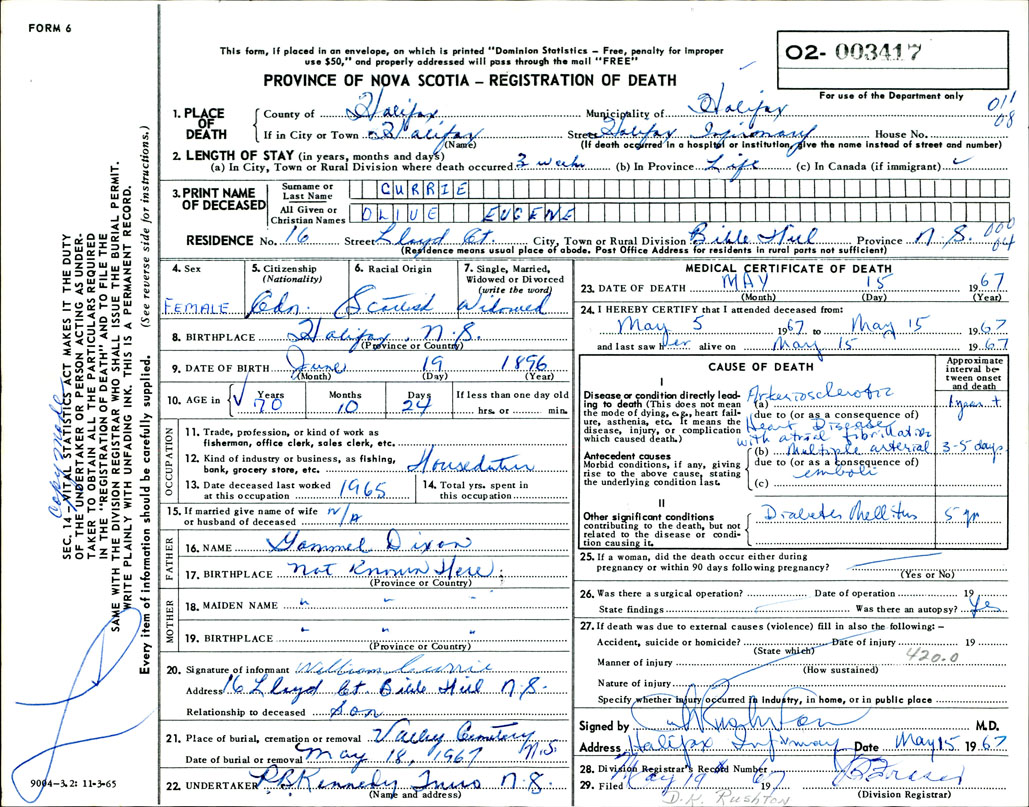 FORM 6
This form, if placed in an envelope, on which is printed "Dominion Statistics – Free, penalty for improper
use $50," and properly addressed will pass through the mail "FREE"
PROVINCE OF NOVA SCOTIA – REGISTRATION OF DEATH
O2- 003417
For use of the Department only
011
08
1. PLACE OF DEATH
County of Halifax Municipality of Halifax
If in City or Town Halifax Street Halifax Infirmary House No.
(Name) (If death occurred in a hospital or institution, give the name instead of street and number)
2. LENGTH OF STAY (in years, months and days)
(a) In City, Town or Rural Division where death occurred 3 weeks (b) In Province Life (c) In Canada (if immigrant)
3. PRINT NAME OF DECEASED
Surname or Last Name CURRIE
All Given or Christian Names OLIVE EUGENE
RESIDENCE No. 16 Street Lloyd Ct. City, Town or Rural Division Bible Hill Province N.S.
000
04
(Residence means usual place of abode. Post Office Address for residents in rural parts not sufficient)
4. Sex FEMALE
5. Citizenship (Nationality) Cdn.
6. Racial Origin Scottish
7. Single, Married, Widowed or Divorced (write the word) Widowed
8. BIRTHPLACE Halifax, N.S.
(Province or Country)
9. DATE OF BIRTH June 19 1896
(Month) (Day) (Year)
10. AGE in Years 70 Months 10 Days 24 If less than one day old hrs. or min.
OCCUPATION
11. Trade, profession, or kind of work as
fisherman, office clerk, sales clerk, etc.
12. Kind of industry or business, as fishing,
bank, grocery store, etc. Houseduties
13. Date deceased last worked at this occupation 1965
14. Total yrs. spent in this occupation
15. If married give name of wife or husband of deceased N/A
FATHER
16. NAME Gammel Dixon
17. BIRTHPLACE Not Known Here
(Province or Country)
MOTHER
18. MAIDEN NAME " " "
19. BIRTHPLACE " " "
(Province or Country)
20. Signature of informant William Currie
Address 16 Lloyd Ct. Bible Hill N.S.
Relationship to deceased Son
21. Place of burial, cremation or removal Valley Cemetery N.S.
Date of burial or removal May 18, 1967
22. UNDERTAKER R B Kennedy Truro N.S.
(Name and address)
MEDICAL CERTIFICATE OF DEATH
23. DATE OF DEATH MAY 15 1967
(Month) (Day) (Year)
24. I HEREBY CERTIFY that I attended deceased from:
May 5 1967 to May 15 1967
and last saw her alive on May 15 1967
CAUSE OF DEATH
Approximate interval between onset and death
I
Disease or condition directly leading to death (This does not mean the mode of dying, e.g., heart failure, asthenia, etc. It means the disease, injury, or complication which caused death.)
(a) Arteriosclerotic 1 year +
due to (or as a consequence of)
Heart Disease
with atrial fibrillation
Antecedent causes
Morbid conditions, if any, giving rise to the above cause, stating the underlying condition last.
(b) Multiple arterial 3-5 days
due to (or as a consequence of)
emboli
(c)
II
Other significant conditions
contributing to the death, but not related to the disease or condition causing it.
Diabetes Mellitus 5 yr
25. If a woman, did the death occur either during
pregnancy or within 90 days following pregnancy?
(Yes or No)
26. Was there a surgical operation? Date of operation 19
State findings Was there an autopsy? Yes
27. If death was due to external causes (violence) fill in also the following: –
Accident, suicide or homicide? Date of injury 19
(State which) 420.0
Manner of injury
(How sustained)
Nature of injury
Specify whether injury occurred in industry, in home, or in public place
Signed by Rushton M.D.
Address Halifax Infirmary Date May 15 1967
28. Division Registrar's Record Number
29. Filed May 19th 1967
(Division Registrar)
D.K. RUSHTON
SEC. 14 – VITAL STATISTICS ACT MAKES IT THE DUTY
OF THE UNDERTAKER OR PERSON ACTING AS UNDER-
TAKER TO OBTAIN ALL THE PARTICULARS REQUIRED
IN THE "REGISTRATION OF DEATH" AND TO FILE THE
SAME WITH THE DIVISION REGISTRAR WHO SHALL ISSUE THE BURIAL PERMIT.
WRITE PLAINLY WITH UNFADING INK. THIS IS A PERMANENT RECORD.
Every item of information should be carefully supplied. (See reverse side for instructions.)
9004-3.2: 11-3-65